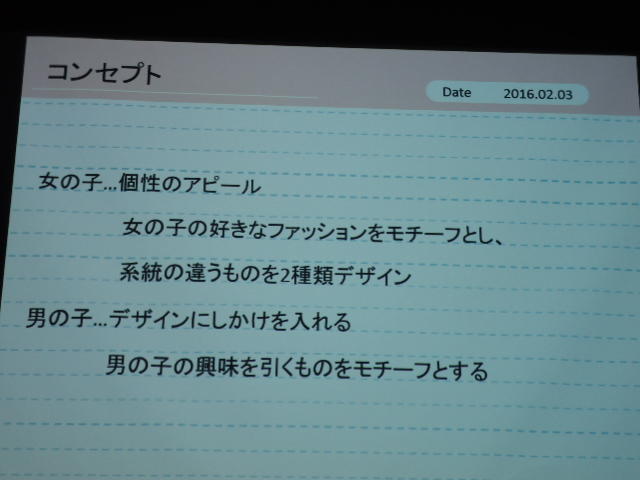 コンセプト
Date 2016.02.03
女の子...個性のアピール
女の子の好きなファッションをモチーフとし、
系統の違うものを2種類デザイン
男の子...デザインにしかけを入れる
男の子の興味を引くものをモチーフとする